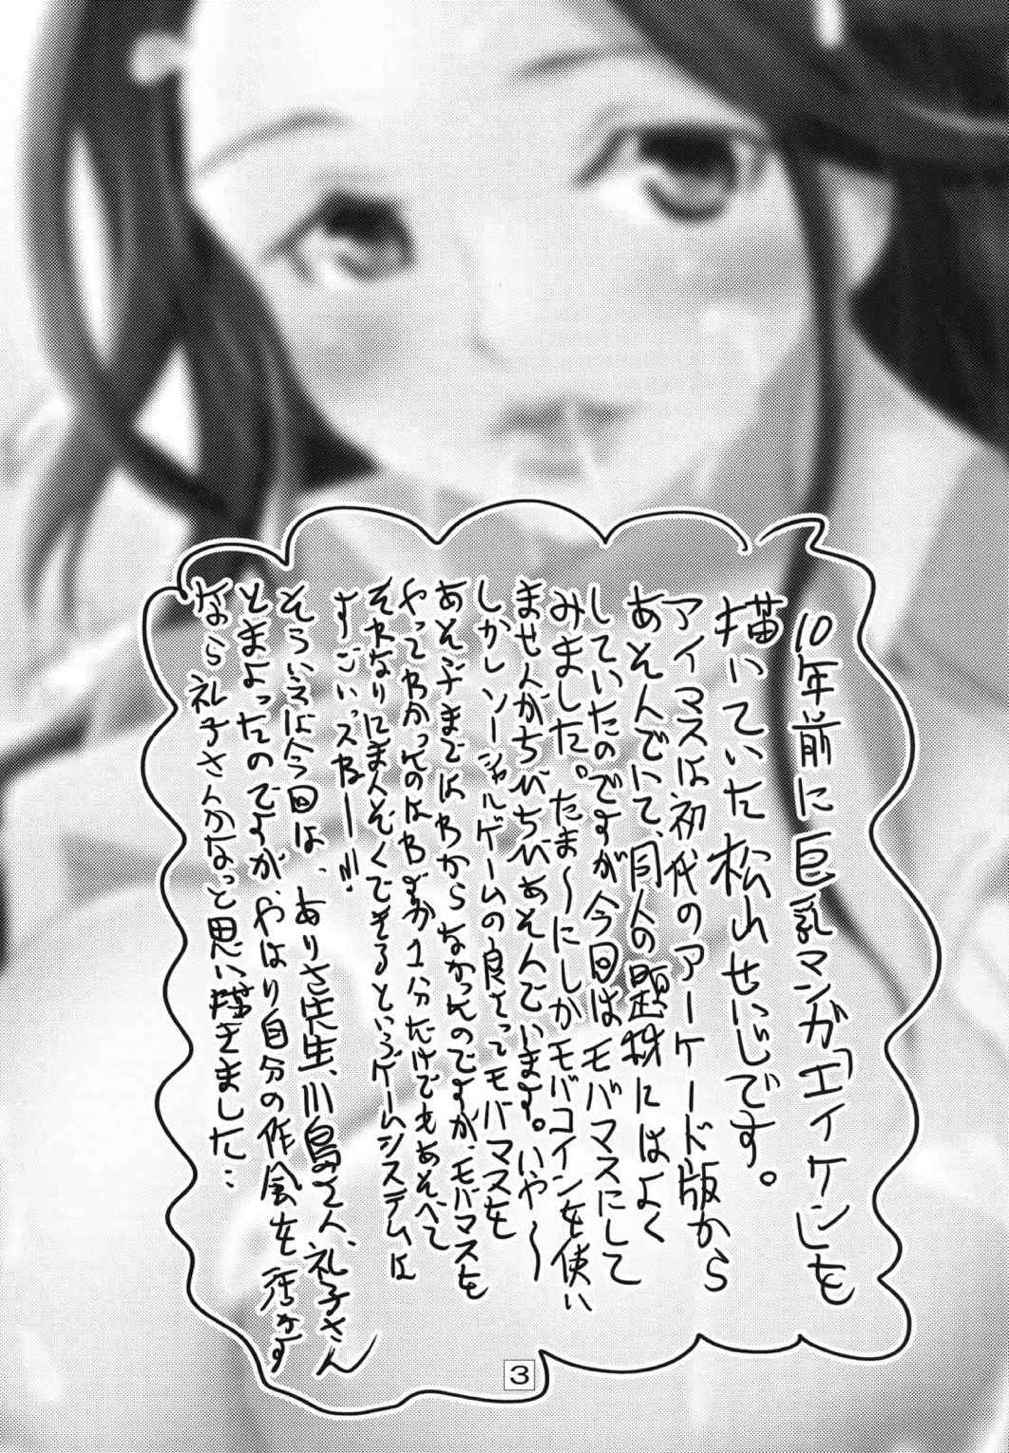 10年前に巨乳マンガ「エイケン」を
描いていた松山せいじです。
アイマスは初代のアーケード版から
あそんでいて、同人の題材にはよく
していたのですが今回はモバマスにして
みました。たま〜にしかモバコインを使い
ませんがちびちびあそんでいます。いや〜
しかしソーシャルゲームの良さってモバマスを
あそぶまではわからなかったのですが、モバマスを
やってわかったのはわずか1分だけでもあそべて
それなりにまんぞくできるというゲームシステムは
すごいっスねー!!!
そういえば今回は、ありさ先生、川島さん、礼子さん
とまよったのですが、やはり自分の作風を活かす
なら礼子さんかなっと思い描きました…
3